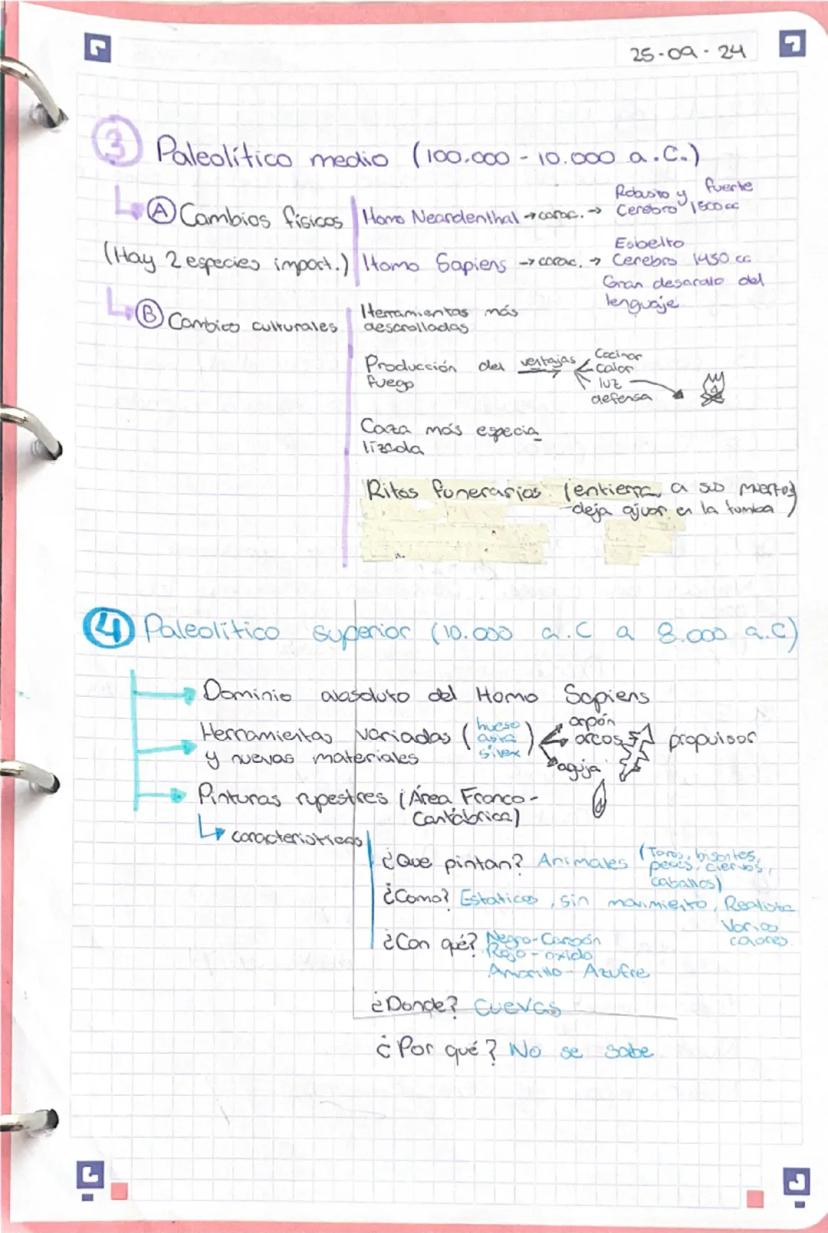 25-09-24
③ Paleolítico medio (100.000 - 10.000 a.C.)
Ⓐ Cambios físicos
(Hay 2 especies import.)
Homo Neardenthal → carac. → Robusto y fuerte
Cerebro 1500 cc
Homo Sapiens → carac. → Esbelto
Cerebro 1450 cc
Gran desarollo del
lenguaje
Ⓑ Cambios culturales
Herramientas más
desarrolladas
Producción del
fuego
ventajas
Cocinar
Calor
luz
defensa
Caza más especia_
lizada
Ritos funerarios (entierra a sus muertos
deja ajuar en la tumba)
④ Paleolítico superior (10.000 a.C a 8.000 a.C)
Dominio absoluto del Homo Sapiens
Herramientas variadas
y nuevas materiales
(hueso
asta
sílex)
arpón
arcos
aguja
propulsor
Pinturas rupestres (Área Franco-
Cantábrica)
características
¿Que pintan? Animales (Toros, bisontes,
peces, ciervos,
caballos)
¿Como? Estaticos, sin movimiento, Realista
Varios
colores
¿Con qué? Negro-Carbón
Rojo-oxido
Amarillo-Azufre
¿Donde? Cuevas
¿Por qué? No se sabe